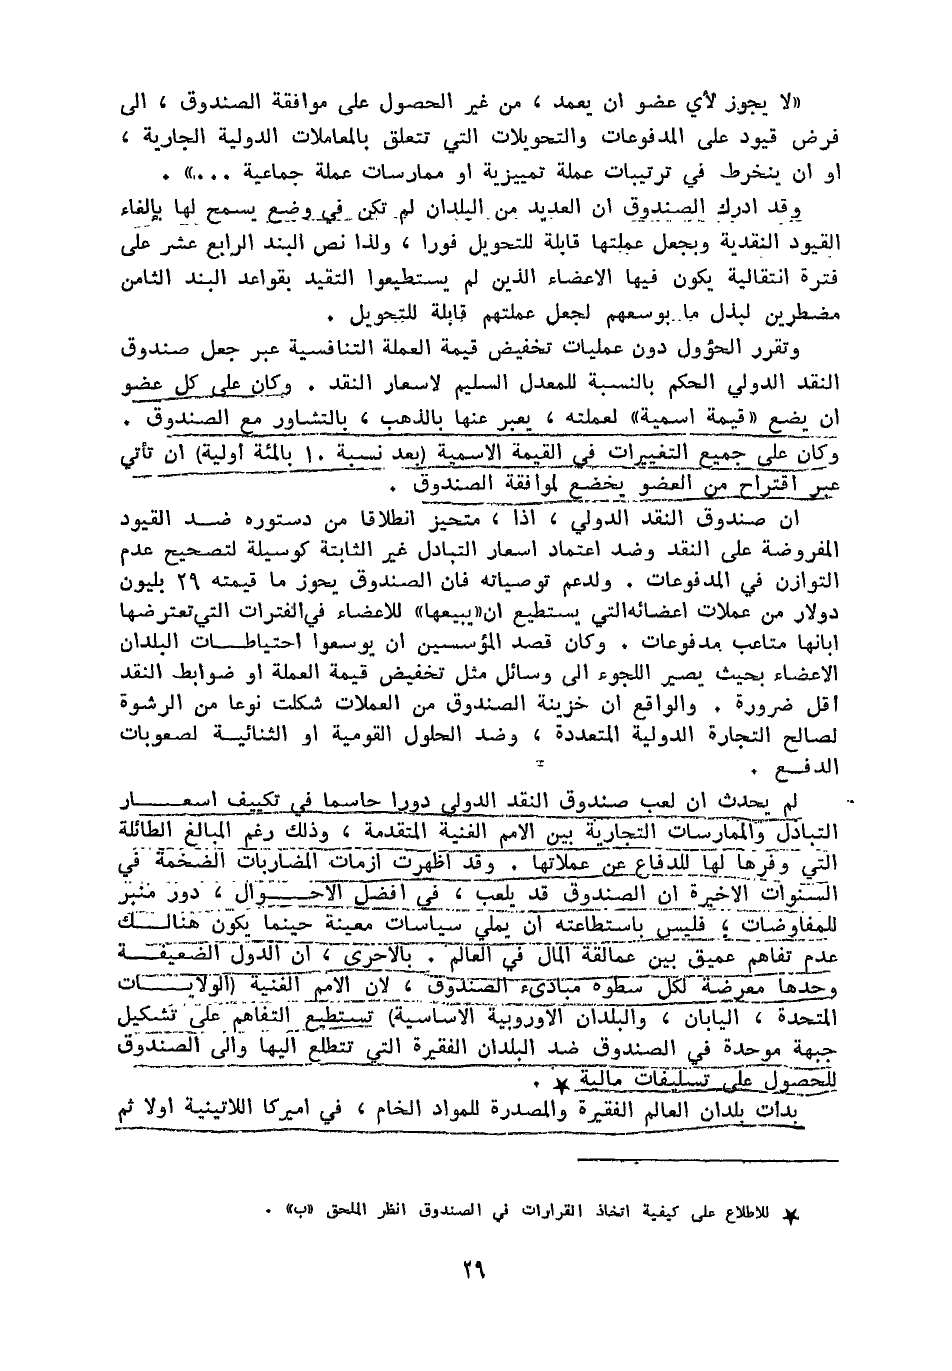 «لا يجوز لأي عضو ان يعمد ، من غير الحصول على موافقة الصندوق ، الى
فرض قيود على المدفوعات والتحويلات التي تتعلق بالمعاملات الدولية الجارية ،
او ان ينخرط في ترتيبات عملة تمييزية او ممارسات عملة جماعية ...» .
وقد ادرك الصندوق ان العديد من البلدان لم تكن في وضع يسمح لها بإلغاء
القيود النقدية وبجعل عملتها قابلة للتحويل فورا ، ولذا نص البند الرابع عشر على
فترة انتقالية يكون فيها الاعضاء الذين لم يستطيعوا التقيد بقواعد البند الثامن
مضطرين لبذل ما بوسعهم لجعل عملتهم قابلة للتحويل .
وتقرر الحؤول دون عمليات تخفيض قيمة العملة التنافسية عبر جعل صندوق
النقد الدولي الحكم بالنسبة للمعدل السليم لاسعار النقد . وكان على كل عضو
ان يضع «قيمة اسمية» لعملته ، يعبر عنها بالذهب ، بالتشاور مع الصندوق .
وكان على جميع التغييرات في القيمة الاسمية (بعد نسبة ١٠ بالمئة اولية) ان تأتي
عبر اقتراح من العضو يخضع لموافقة الصندوق .
ان صندوق النقد الدولي ، اذا ، متحيز انطلاقا من دستوره ضـد القيود
المفروضة على النقد وضد اعتماد اسعار التبادل غير الثابتة كوسيلة لتصحيح عدم
التوازن في المدفوعات . ولدعم توصياته فان الصندوق يحوز ما قيمته ٢٩ بليون
دولار من عملات اعضائه التي يستطيع ان «يبيعها» للاعضاء في الفترات التي تعترضها
ابانها متاعب مدفوعات . وكان قصد المؤسسين ان يوسعوا احتياطـات البلدان
الاعضاء بحيث يصير اللجوء الى وسائل مثل تخفيض قيمة العملة او ضوابط النقد
أقل ضرورة . والواقع ان خزينة الصندوق من العملات شكلت نوعا من الرشوة
لصالح التجارة الدولية المتعددة ، وضد الحلول القومية او الثنائيـة لصعوبات
الدفـع .
لم يحدث ان لعب صندوق النقد الدولي دورا حاسما في تكييف اسعـار
التبادل والممارسات التجارية بين الامم الغنية المتقدمة ، وذلك رغم المبالغ الطائلة
التي وفرها لها للدفاع عن عملاتها . وقد اظهرت ازمات المضاربات الضخمة في
السنوات الاخيرة ان الصندوق قد يلعب ، في افضل الاحـوال ، دور منبر
للمفاوضات ؛ فليس باستطاعته ان يملي سياسات معينة حينما يكون هنالـك
عدم تفاهم عميق بين عمالقة المال في العالم . بالاحرى ، ان الدول الضعيفـة
وحدها معرضة لكل سطوة مبادىء الصندوق ، لان الامم الغنية (الولايـات
المتحدة ، اليابان ، والبلدان الاوروبية الاساسية) تستطيع التفاهم على تشكيل
جبهة موحدة في الصندوق ضد البلدان الفقيرة التي تتطلع اليها والى الصندوق
للحصول على تسليفات مالية ★ .
بدأت بلدان العالم الفقيرة والمصدرة للمواد الخام ، في اميركا اللاتينية اولا ثم
★ للاطلاع على كيفية اتخاذ القرارات في الصندوق انظر الملحق «ب» .
٢٩